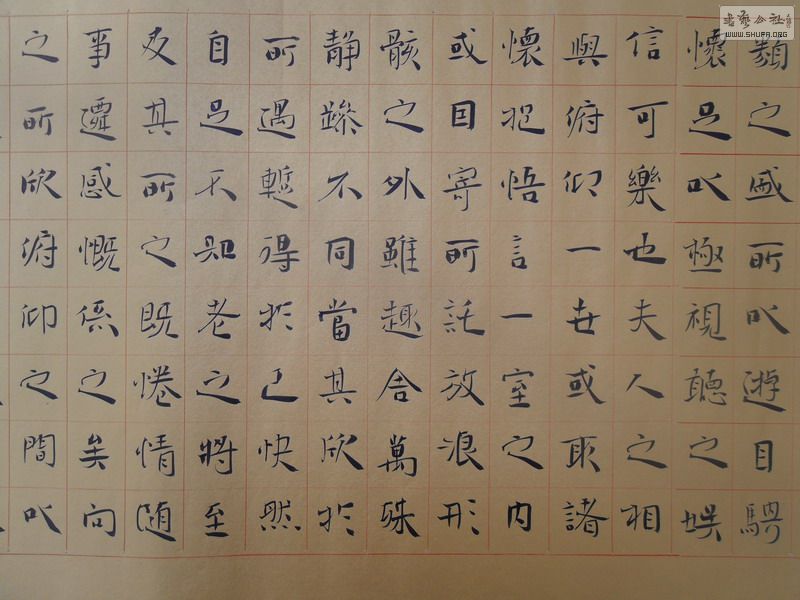 類之盛所以遊目騁
懷足以極視聽之娛
信可樂也夫人之相
與俯仰一世或取諸
懷抱悟言一室之內
或因寄所託放浪形
骸之外雖趣舍萬殊
静躁不同當其欣於
所遇暫得於己快然
自足不知老之將至
及其所之既惓情随
事遷感慨係之矣向
之所欣俯仰之間以
書藝公社
WWW.SHUFA.ORG